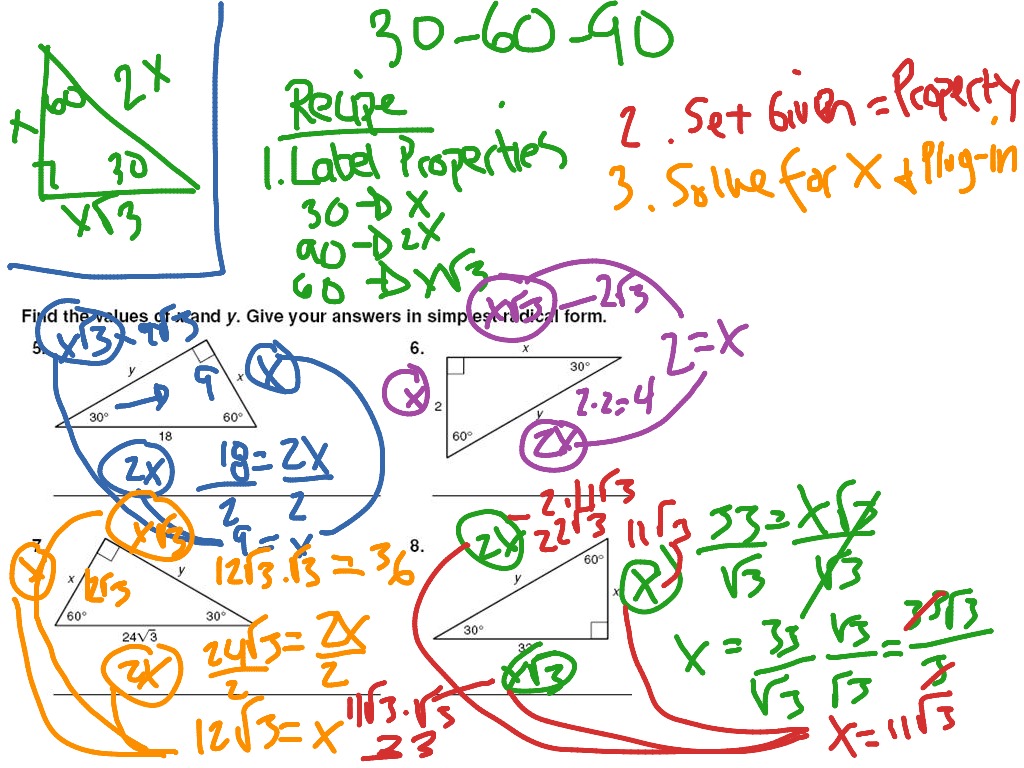 30-60-90
60
2x
x
30
x√3
Recipe
1. Label Properties
30 → x
90 → 2x
60 → x√3
2. Set Given = Property
3. Solve for x + Plug-in
Find the values of x and y. Give your answers in simplest radical form.
5.
x√3 - 9√3
y
9
x
x
30°
60°
18
2x
18 = 2x
2 2
9 = x
6.
x√3 - 2√3
x
30°
x
2
y
60°
2x
2·2=4
2=x
7.
x
x√3
x
12√3
y
60°
30°
24√3
2x
12√3·√3 = 36
24√3 = 2x
2 2
12√3 = x
8.
2x - 2·11√3
22√3
y
60°
11√3
x
x
30°
x√3
11√3·√3
33 = x√3
√3 √3
x = 33 √3 = 33√3
√3 √3 3
x = 11√3